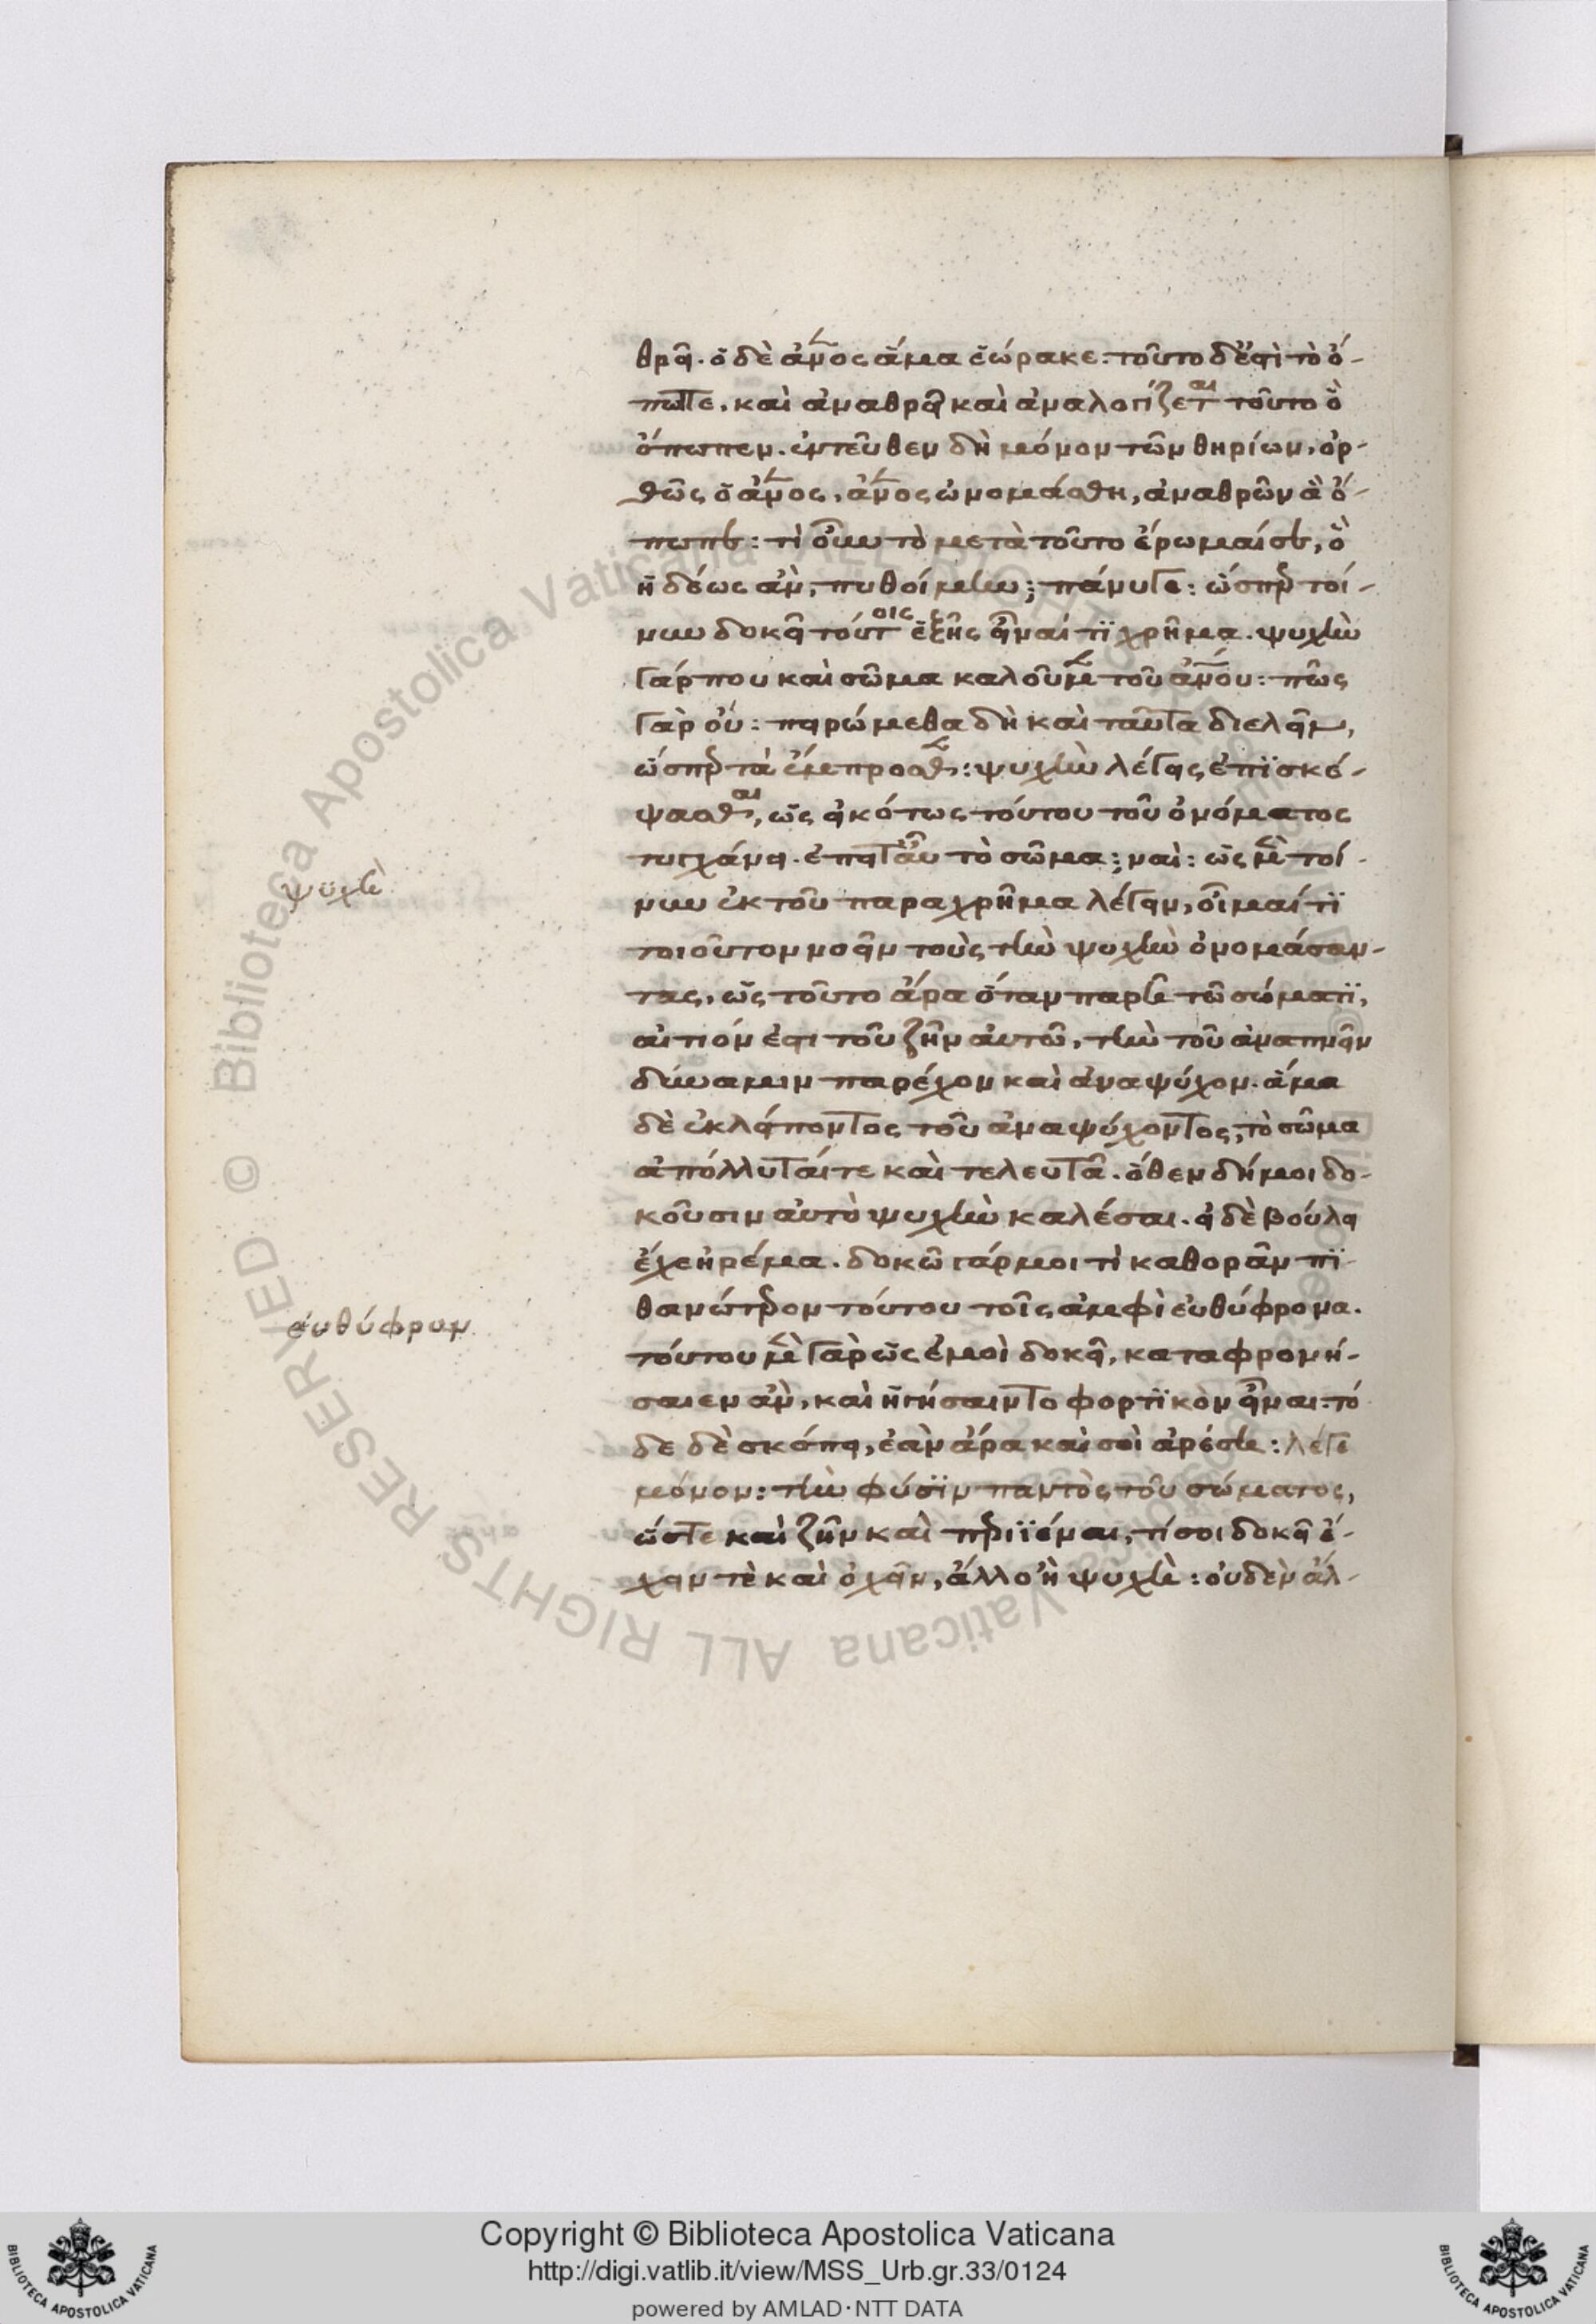 θρεῖ. ὁ δὲ ἄνος ἅμα ἑώρακε: τοῦτο δ' ἐστὶ τὸ ὄ-
πωπε. καὶ ἀναθρεῖ καὶ ἀναλογίζεται τοῦτο ὃ
ὄπωπεν. ἐντεῦθεν δὴ μόνον τῶν θηρίων, ὀρ-
θῶς ὁ ἄνος, ἄνος ὠνομάσθη, ἀναθρῶν ἃ ὄ-
πωπε: τί οὖν τὸ μετὰ τοῦτο ἔρωμαί σε, ὃ
ἡδέως ἂν, πυθοίμην; πάνυγε: ὥσπερ τοί-
νυν δοκεῖ τούτοις ἑξῆς εἶναί τι χρῆμα. ψυχὴν
γάρ που καὶ σῶμα καλοῦμεν τοῦ ἄνου: πῶς
γὰρ οὔ: πειρώμεθα δὴ καὶ ταῦτα διελεῖν,
ὥσπερ τὰ ἔμπροσθεν: ψυχὴν λέγεις ἐπισκέ-
ψασθαι, ὡς εἰκότως τούτου τοῦ ὀνόματος
τυγχάνει. ἔπειτ' αὖ τὸ σῶμα; ναί: ὡς μὲν τοί-
νυν ἐκ τοῦ παραχρῆμα λέγειν, οἶμαί τι
τοιοῦτον νοεῖν τοὺς τὴν ψυχὴν ὀνομάσαν-
τας, ὡς τοῦτο ἄρα ὅταν παρῆ τῶ σώματι,
αἴτιόν ἐστι τοῦ ζῆν αὐτῶ, τὴν τοῦ ἀναπνεῖν
δύναμιν παρέχον καὶ ἀναψύχον. ἅμα
δὲ ἐκλείποντος τοῦ ἀναψύχοντος, τὸ σῶμα
ἀπόλλυταί τε καὶ τελευτᾶ. ὅθεν δή μοι δο-
κοῦσιν αὐτὸ ψυχὴν καλέσαι. εἰ δὲ βούλει
ἔχε ἠρέμα. δοκῶ γάρ μοι τὶ καθορᾶν πι
θανώτερον τούτου τοῖς ἀμφὶ εὐθύφρονα.
τούτου μὲν γὰρ ὡς ἐμοὶ δοκεῖ, καταφρονή-
σαιεν ἂν, καὶ ἡγήσαιντο φορτικὸν εἶναι: τό
δε δὲ σκόπει, ἐὰν ἄρα καὶ σοὶ ἀρέση: λέγε
μόνον: τὴν φύσιν παντὸς τοῦ σώματος,
ὥστε καὶ ζῆν καὶ περιϊέναι, τί σοι δοκεῖ ἔ-
χειν τὲ καὶ ὀχεῖν, ἄλλο ἢ ψυχή: οὐδὲν ἄλ-
ψυχὴ
εὐθύφρων
Copyright © Biblioteca Apostolica Vaticana
http://digi.vatlib.it/view/MSS_Urb.gr.33/0124
powered by AMLAD·NTT DATA
© Biblioteca Apostolica Vaticana ALL RIGHTS RESERVED
BIBLIOTECA APOSTOLICA VATICANA
BIBLIOTECA APOSTOLICA VATICANA